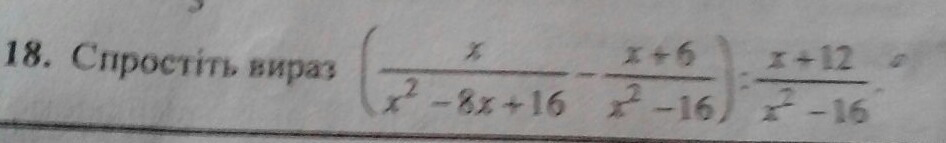 18. Спростіть вираз (x/(x² − 8x + 16) − (x + 6)/(x² − 16)) : (x + 12)/(x² − 16).